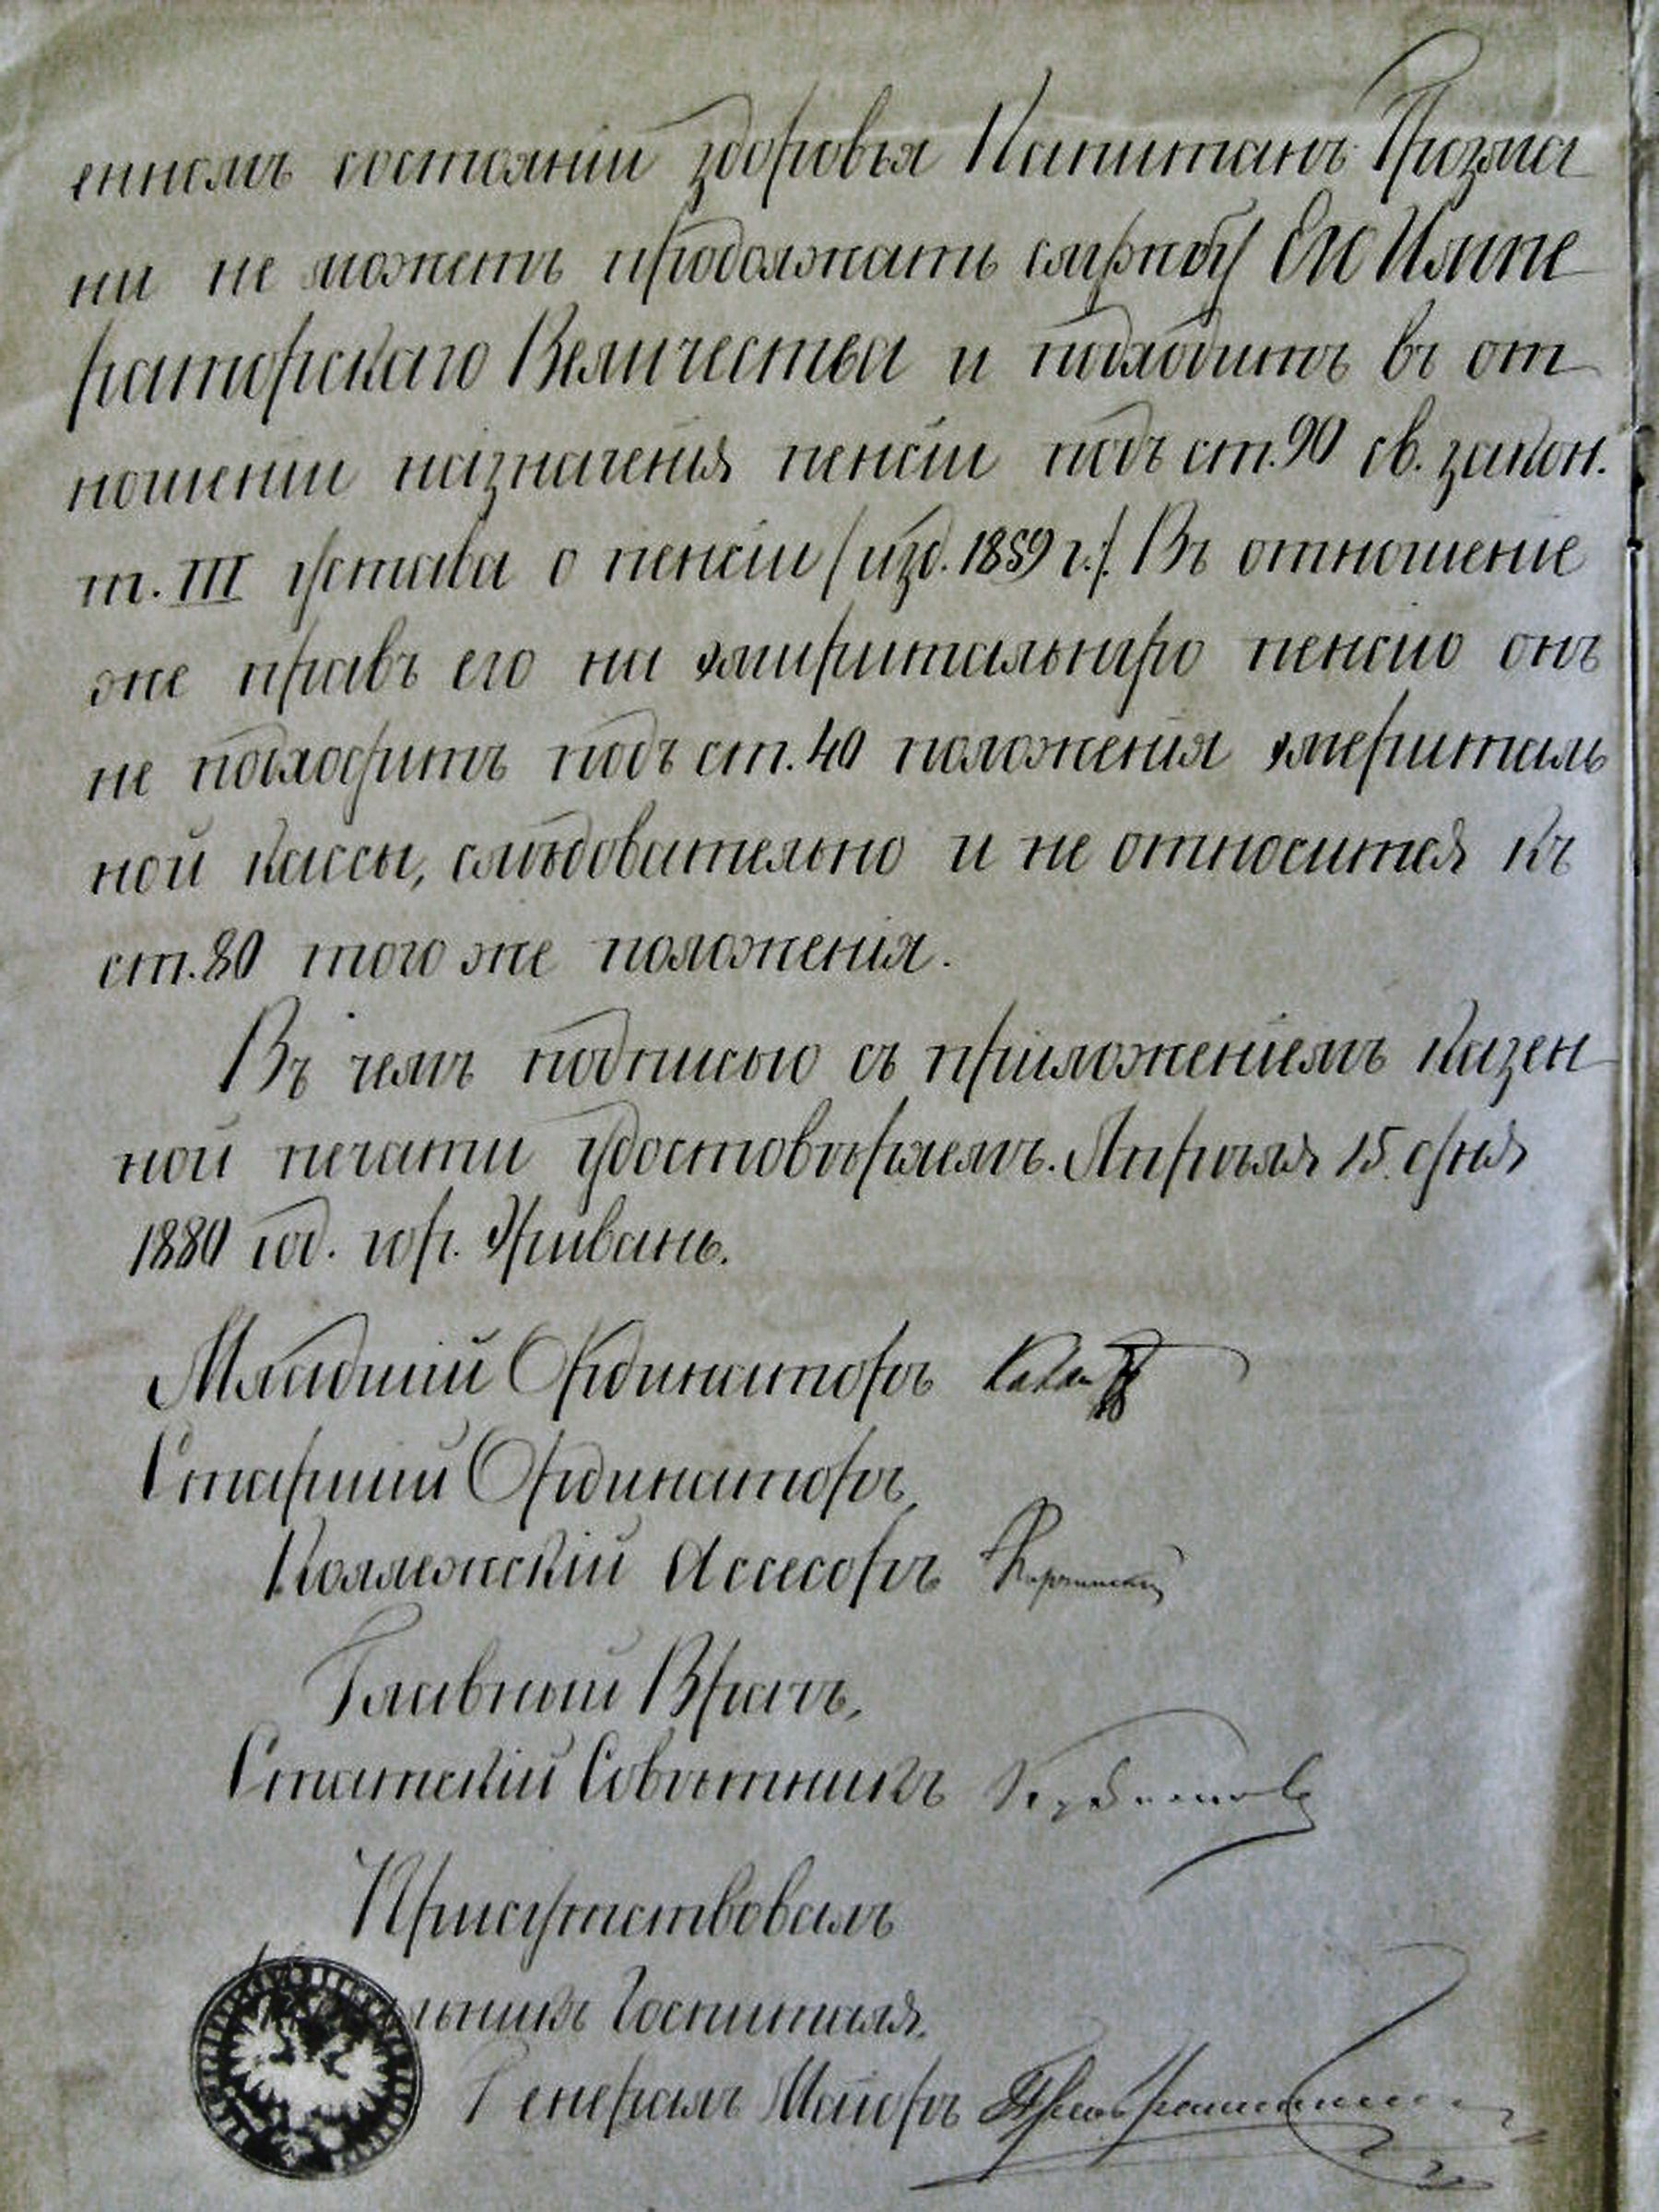 енномъ состояніи здоровья Капитанъ Призма
ни не можетъ продолжать службу Его Импе
раторскаго Величества и подходитъ въ от
ношеніи назначенія пенсіи подъ ст. 90 св. закон.
т. III устава о пенсіи (изд. 1859 г.). Въ отношеніе
же правъ его на эмиритальную пенсію онъ
не подходитъ подъ ст. 40 положенія эмериталь
ной кассы, слѣдовательно и не относится къ
ст. 80 того же положенія.
Въ чемъ подписью съ приложеніемъ казен
ной печати удостовѣряемъ. Апрѣля 15 дня
1880 год. гор. Эривань.
Младшій Ординаторъ
Старшій Ординаторъ,
Коллежскій Ассесоръ
Главный Врачъ,
Статскій Совѣтникъ
Присутствовалъ
льникъ Госпиталя.
Генералъ Маіоръ